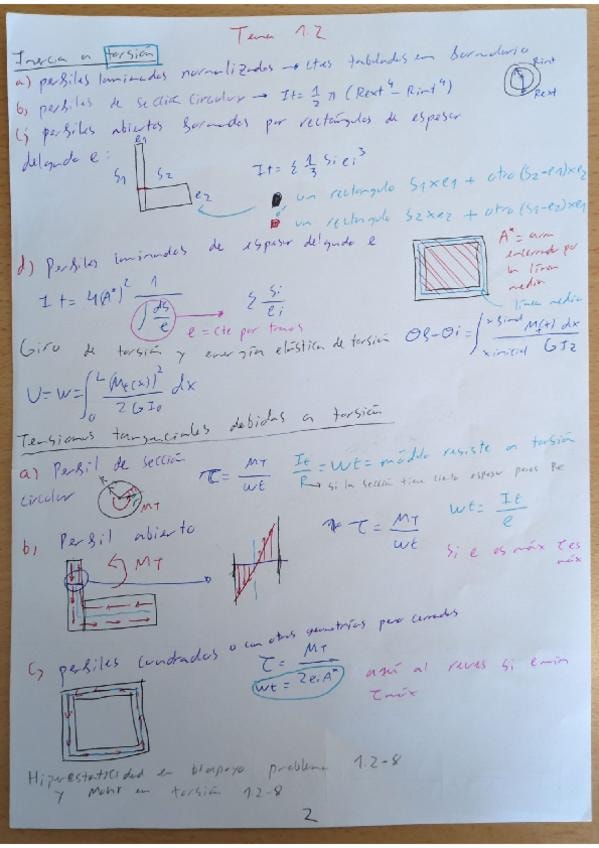 Tema 1.2
Inercia a torsión
a) perfiles laminados normalizados → ctes tabuladas en formulario
b) perfiles de sección circular → It = 1/2 π (Rext⁴ - Rint⁴)
Rint
Rext
c) perfiles abiertos formados por rectángulos de espesor
delgado e:
e1
S1
S2
e2
It = Σ 1/3 Si ei³
un rectangulo S1xe1 + otro (S2-e1)xe2
un rectangulo S2xe2 + otro (S1-e2)xe1
d) Perfiles laminados de espesor delgado e
It = 4(A*)² 1/∫ds/e
Σ Si/ei
e = cte por tramos
A* = area
encerrada por
la línea
media
línea media
Giro de torsión y energía elástica de torsión
θf - θi = ∫ x inicial x final Mt(x) dx / G Iz
U = W = ∫₀ᴸ (Mt(x))² / 2 G I₀ dx
Tensiones tangenciales debidas a torsión
a) Perfil de sección
circular
MT
τ = MT/Wt
It/R = Wt = módulo resiste a torsión
→ si la sección tiene cierto espesor pones Re
b) Perfil abierto
MT
τ = MT/Wt
Wt = It/e
Si e es máx τ es
máx
c) perfiles cuadrados o con otras geometrías pero cerrados
τ = MT
Wt = 2eiA*
aquí al reves si e min
τ máx
Hiperestaticidad en problema 1.2-8
y Mohr en torsión 1.2-8
2